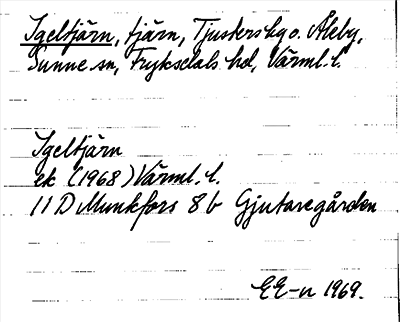 Igeltjärn, tjärn, Tjuskersbg o. Åleby,
Sunne sn, Fryksdals hd, Värml. l.
Igeltjärn
ek (1968) Värml. l.
11 D Munkfors 8 b Gjutaregården
EE-n 1969.